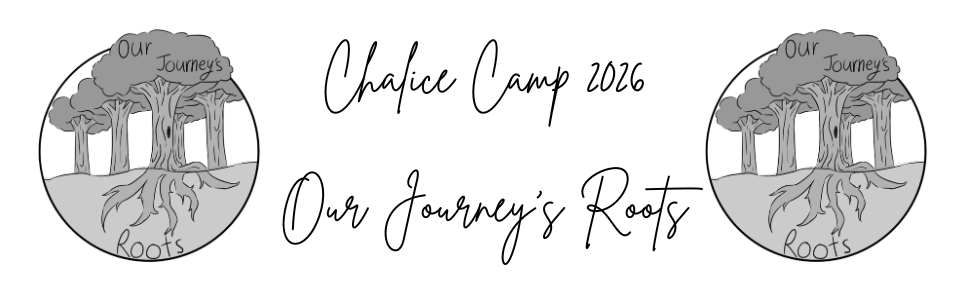 Our
Journey's
Roots
Chalice Camp 2026
Our Journey's Roots
Our
Journey's
Roots